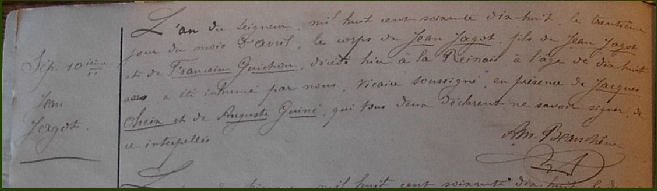 L'an du seigneur, mil huit cent soixante dix huit, le trentième
jour du mois d'avril, le corps de Jean Jagot, fils de Jean Jagot
Sép. 10ième
et de Françoise Guichon, décédé hier à la à l'âge de dix huit
ans a été inhumé par nous, Vicaire soussigné, en présence de Jacques
Jean
et de Auguste qui tous deux déclarent ne savoir signer, de
Jagot.
ce interpellés
mil huit cent soixante dix huit